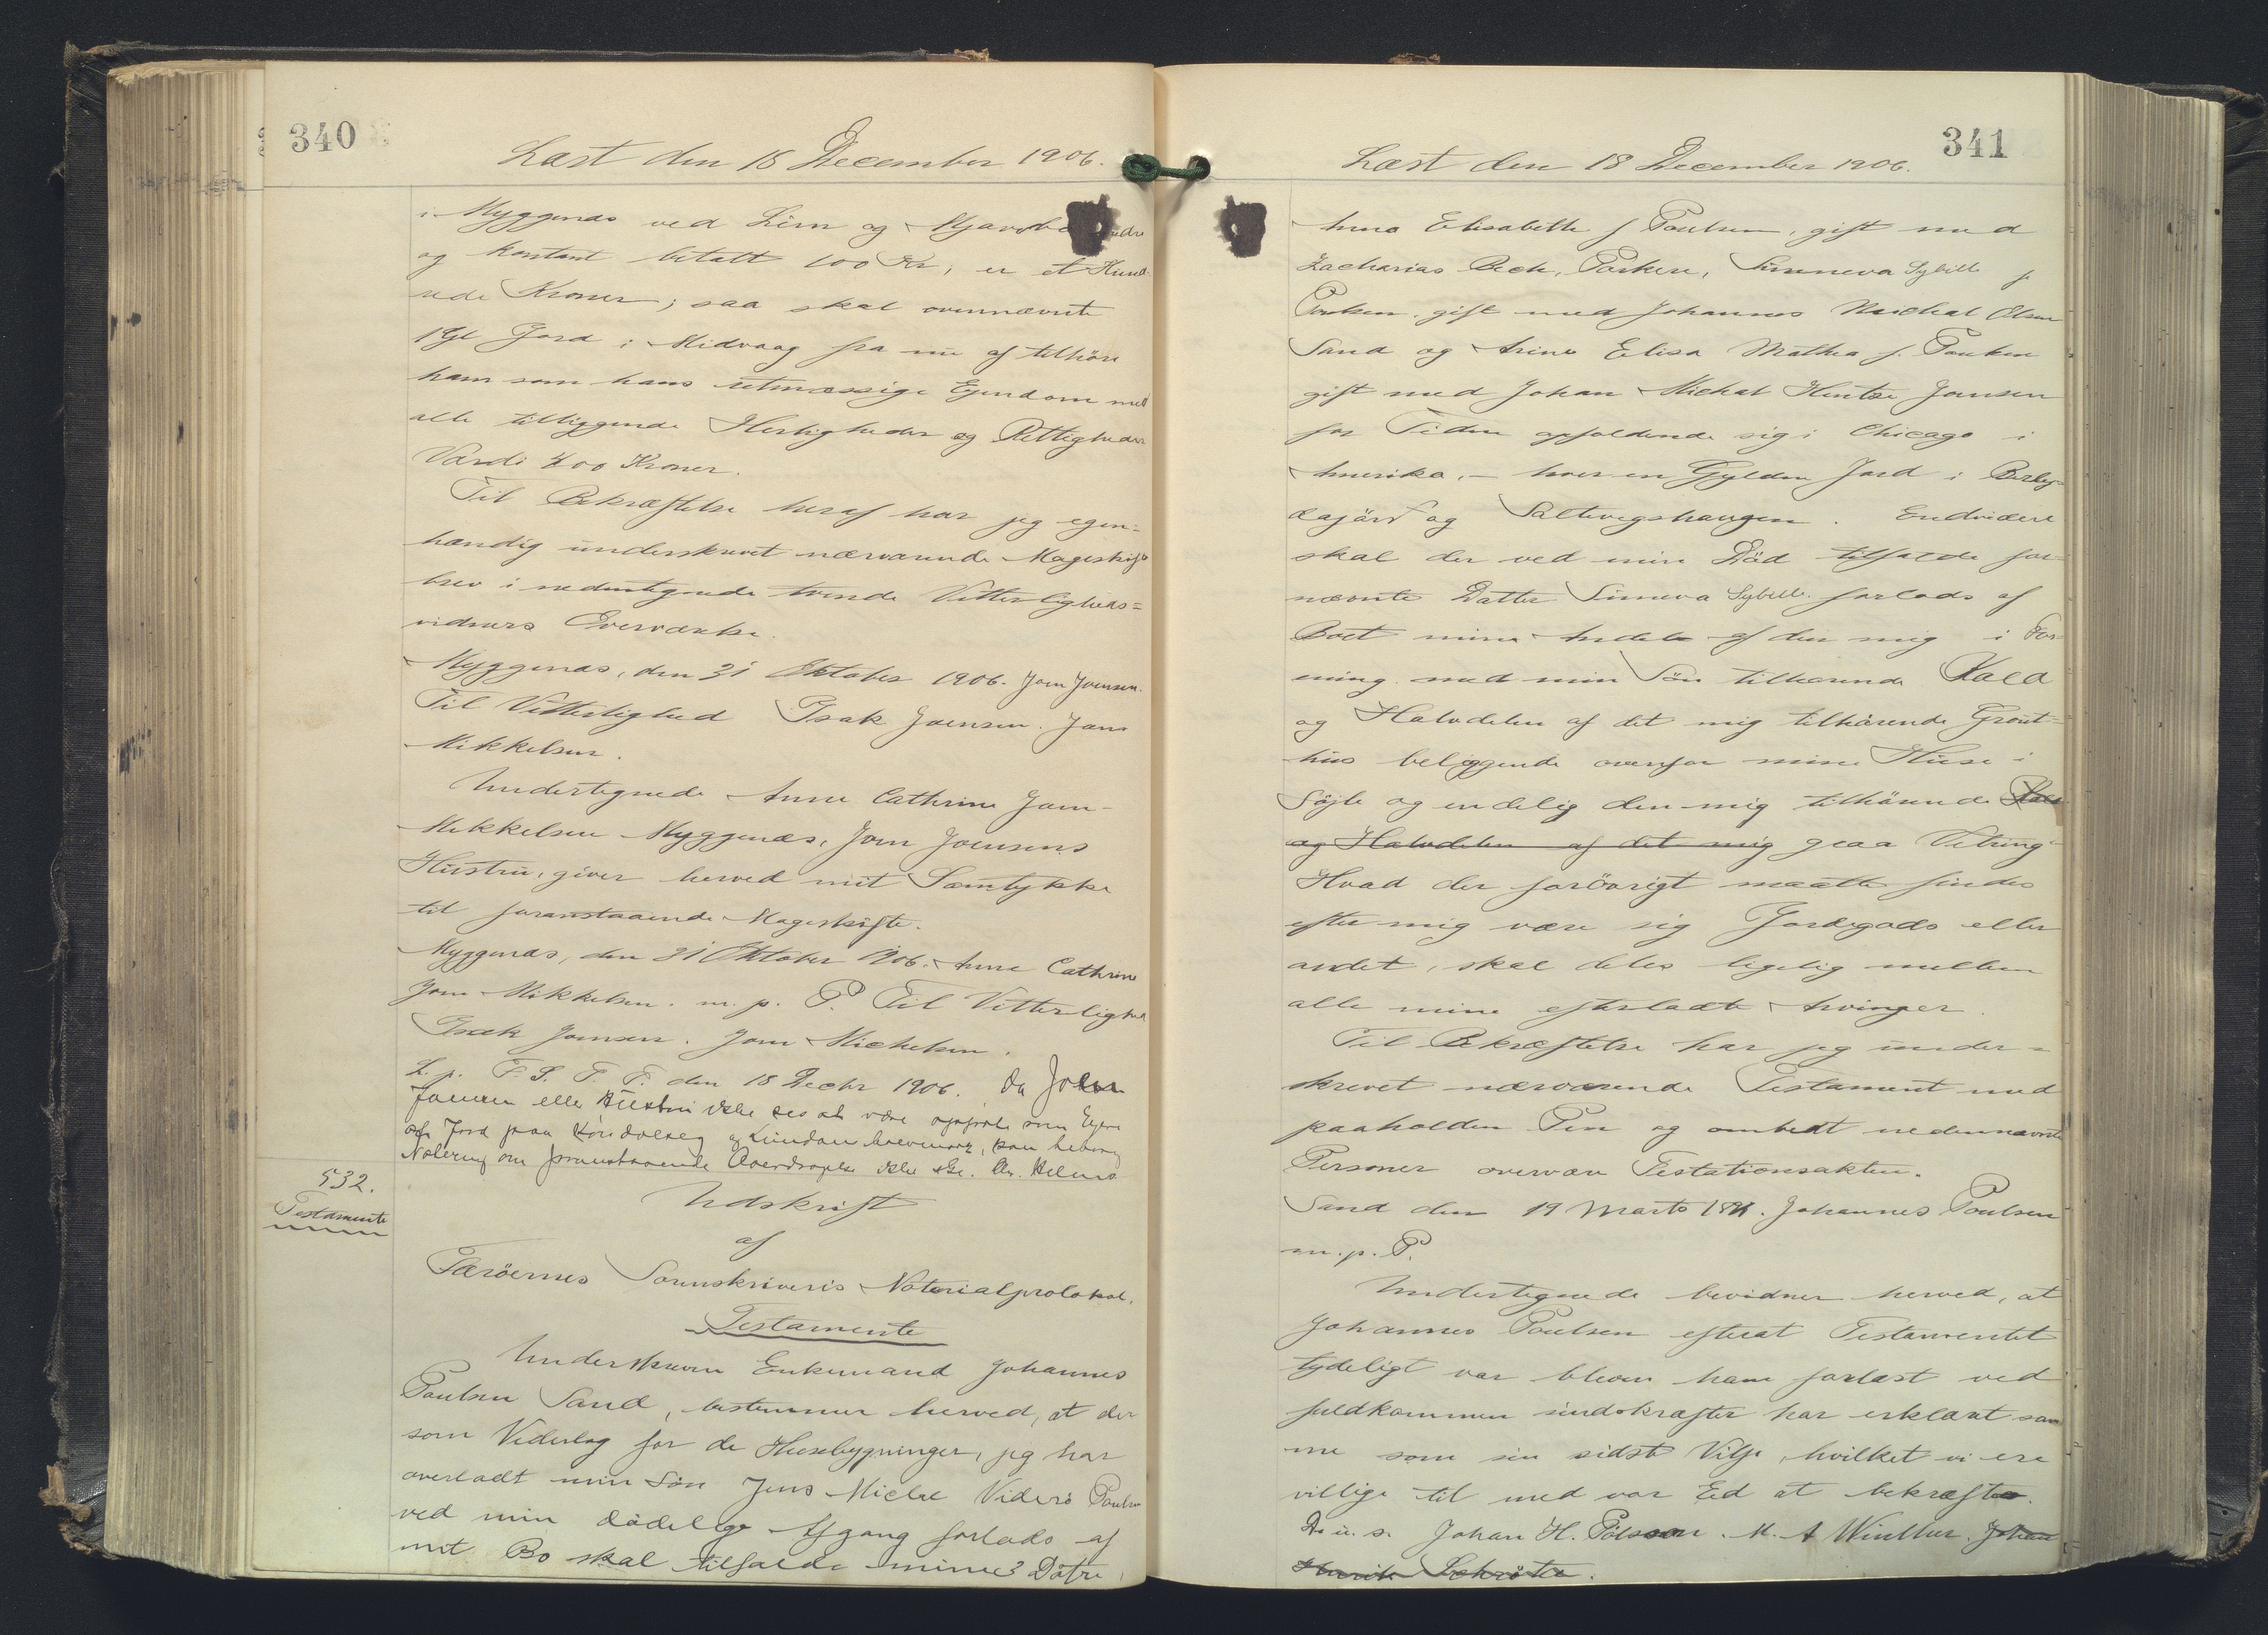 340
Læst den 18 December 1906.
i Myggenæs ved Lim og
og kontant betalt 100 Kr, er et Hund-
rede Kroner; saa skal ovennævnte
1 Gl Jord i Midvaag fra nu af tilhöre
ham som hans retmæssige Ejendom med
alle tilliggende Herligheder og Rettigheder
Værdi 400 Kroner.
Til Bekræftelse heraf har jeg egen=
hændig underskrevet nærværende Mageskifte
brev i nedentegnede tvende Vitterligheds=
vidners Overværelse.
Myggenæs, den 31 Oktober 1906. Joen Joensen.
Til Vitterlighed Isak Joensen. Joen
Mikkelsen.
Undertegnede Anne Cathrine Joen-
Mikkelsen Myggenæs, Joen Joensens
Hustru, giver herved mit Samtykke
til foranstaaende Mageskifte.
Myggenæs, den 31 Oktober 1906. Anne Cathrine
Joen Mikkelsen. m. p. P. Til Vitterlighed
Isak Joensen. Joen Michelsen.
L. p. F. S. T. F. den 18 Decbr 1906. Da Joen
Joensen eller Hustru ikke ses at være opført som Ejere
af Jord paa
Notering om foranstaaende Overdragelse ikke ske.
532.
Testamente
Udskrift
af
Færöernes Sorenskriveris Notarialprotokol.
Testamente
Underskrevne Enkemand Johannes
Poulsen Sand, bestemmer herved, at der
som Vederlag for de Husebygninger, jeg har
overladt min Sön Jens Michæl Viderö Poulsen
ved min dödelige Afgang forlods af
mit Bo skal tilfalde mine 3 Döttre,
341
Læst den 18 December 1906.
Anna Elisabeth f Poulsen, gift med
Zacharias Bech, Porkere, Sunneva Sybille f
Poulsen, gift med Johannes Michal Olsen
Sand og Anine Elisa Mathea f. Poulsen
gift med Johan Michal Hentze Jensen
for Tiden opholdende sig i Chicago i
Amerika. - hver en Gylden Jord i
og Saltvigshaugen. Endvidere
skal der ved min Död tilfalde for=
nævnte Datter Sunneva Sybille forlods af
Boet mine Andele af den mig i For=
ening med min Sön tilhørende Kald
og Halvdelen af det mig tilhörende Grout=
hus beliggende ovenfor mine Huse i
Söjle og endelig den mig tilhörende Kald
og Halvdelen af det mig graa Vetring
Hvad der forövrigt maatte findes
efter mig være sig Jordegods eller
andet, skal deles ligelig mellem
alle mine efterladte Arvinger.
Til Bekræftelse har jeg under=
skrevet nærværende Testament med
paaholden Pen og ombedt nedennævnte
Personer overvære Testationsakten.
Sand den 19 Marts Johannes Poulsen
m. p. P.
Undertegnede bevidner herved, at
Johannes Poulsen efterat Testamentet
tydeligt var bleven ham forlæst ved
fuldkommen sindskræfter har erklæret sam
me som sin sidste Vilje, hvilket vi ere
villige til med vor Ed at bekræfte.
D. u. s. Johan H. Poulsen. M. A Winther. Johan
Henrik Schröter.